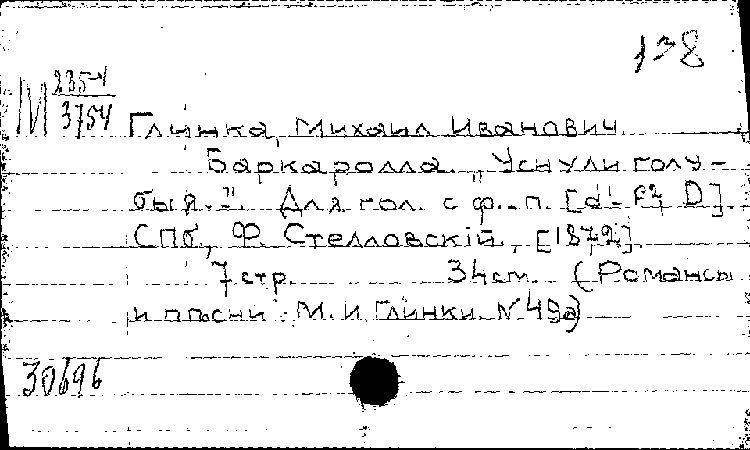 138
М 235-4
3754
Глинка, Михаил Иванович.
Баркаролла. „Уснули голу-
быя..." Для гол. с ф.-п. [d'- D].
СПб, Ф. Стелловскій, [1872].
7 стр. 34 см. (Романсы
и пѣсни М. И Глинки. № 49a)
30696